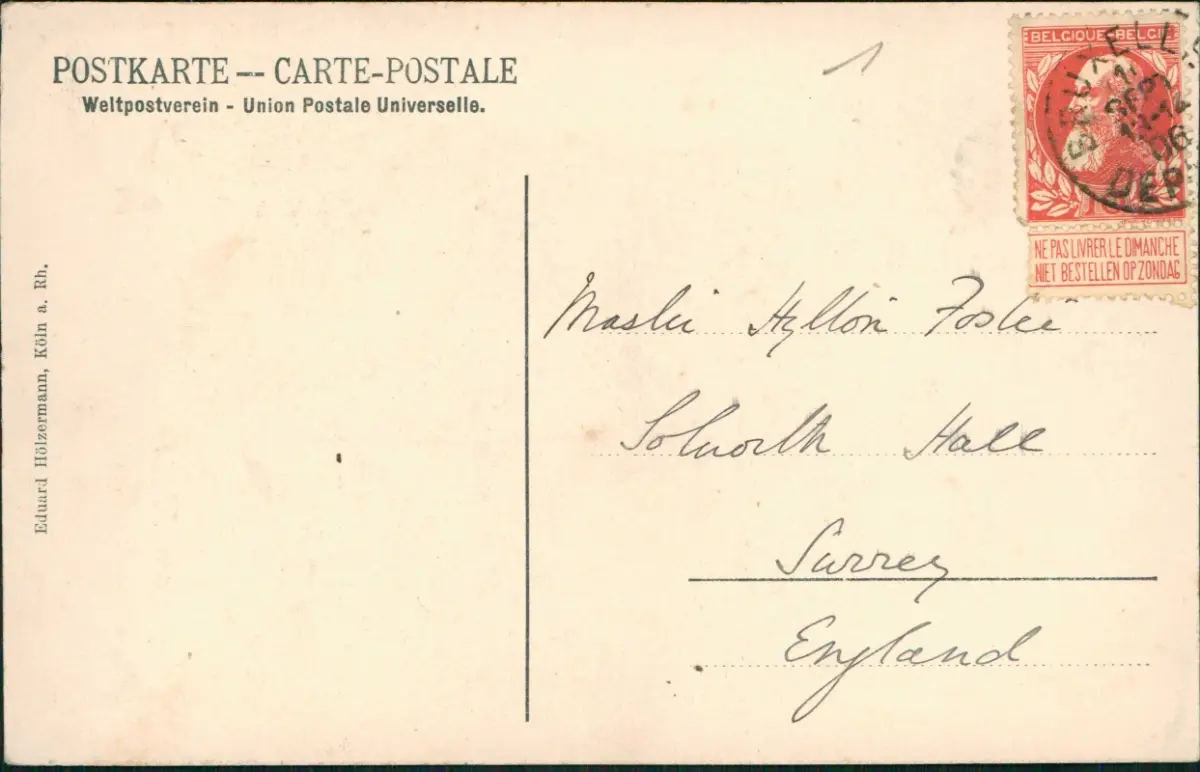 POSTKARTE — CARTE-POSTALE
Weltpostverein - Union Postale Universelle.
BELGIQUE BELGIË
BRUXELLES
SEP
06
DEP
NE PAS LIVRER LE DIMANCHE
NIET BESTELLEN OP ZONDAG
Master Hylton Foster
Hall
Surrey
England
Eduard Hölzermann, Köln a. Rh.